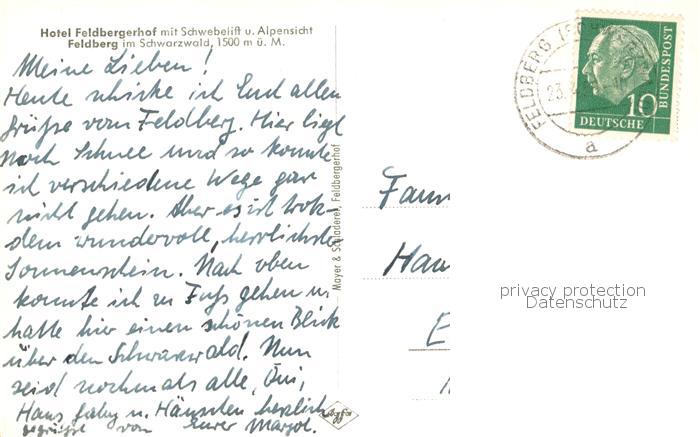 Hotel Feldbergerhof mit Schwebelift u. Alpensicht
Feldberg im Schwarzwald, 1500 m ü. M.
Meine Lieben!
Heute schicke ich Euch allen
Grüße vom Feldberg. Hier liegt
noch Schnee und so konnte
ich verschiedene Wege gar
nicht gehen. Aber es ist trotz-
dem wundervoll, herrlichster
Sonnenschein. Nach oben
konnte ich zu Fuß gehen u.
hatte hier einen schönen Blick
über den Schwarzwald. Nun
seid nochmals alle,
Hans u. Hänschen herzlich
gegrüßt von Eurer Margot.
Mayer & Feldbergerhof
FELDBERG (SCHWARZW
23.
a
10
DEUTSCHE
BUNDESPOST
Fam
Han
E
privacy protection
Datenschutz